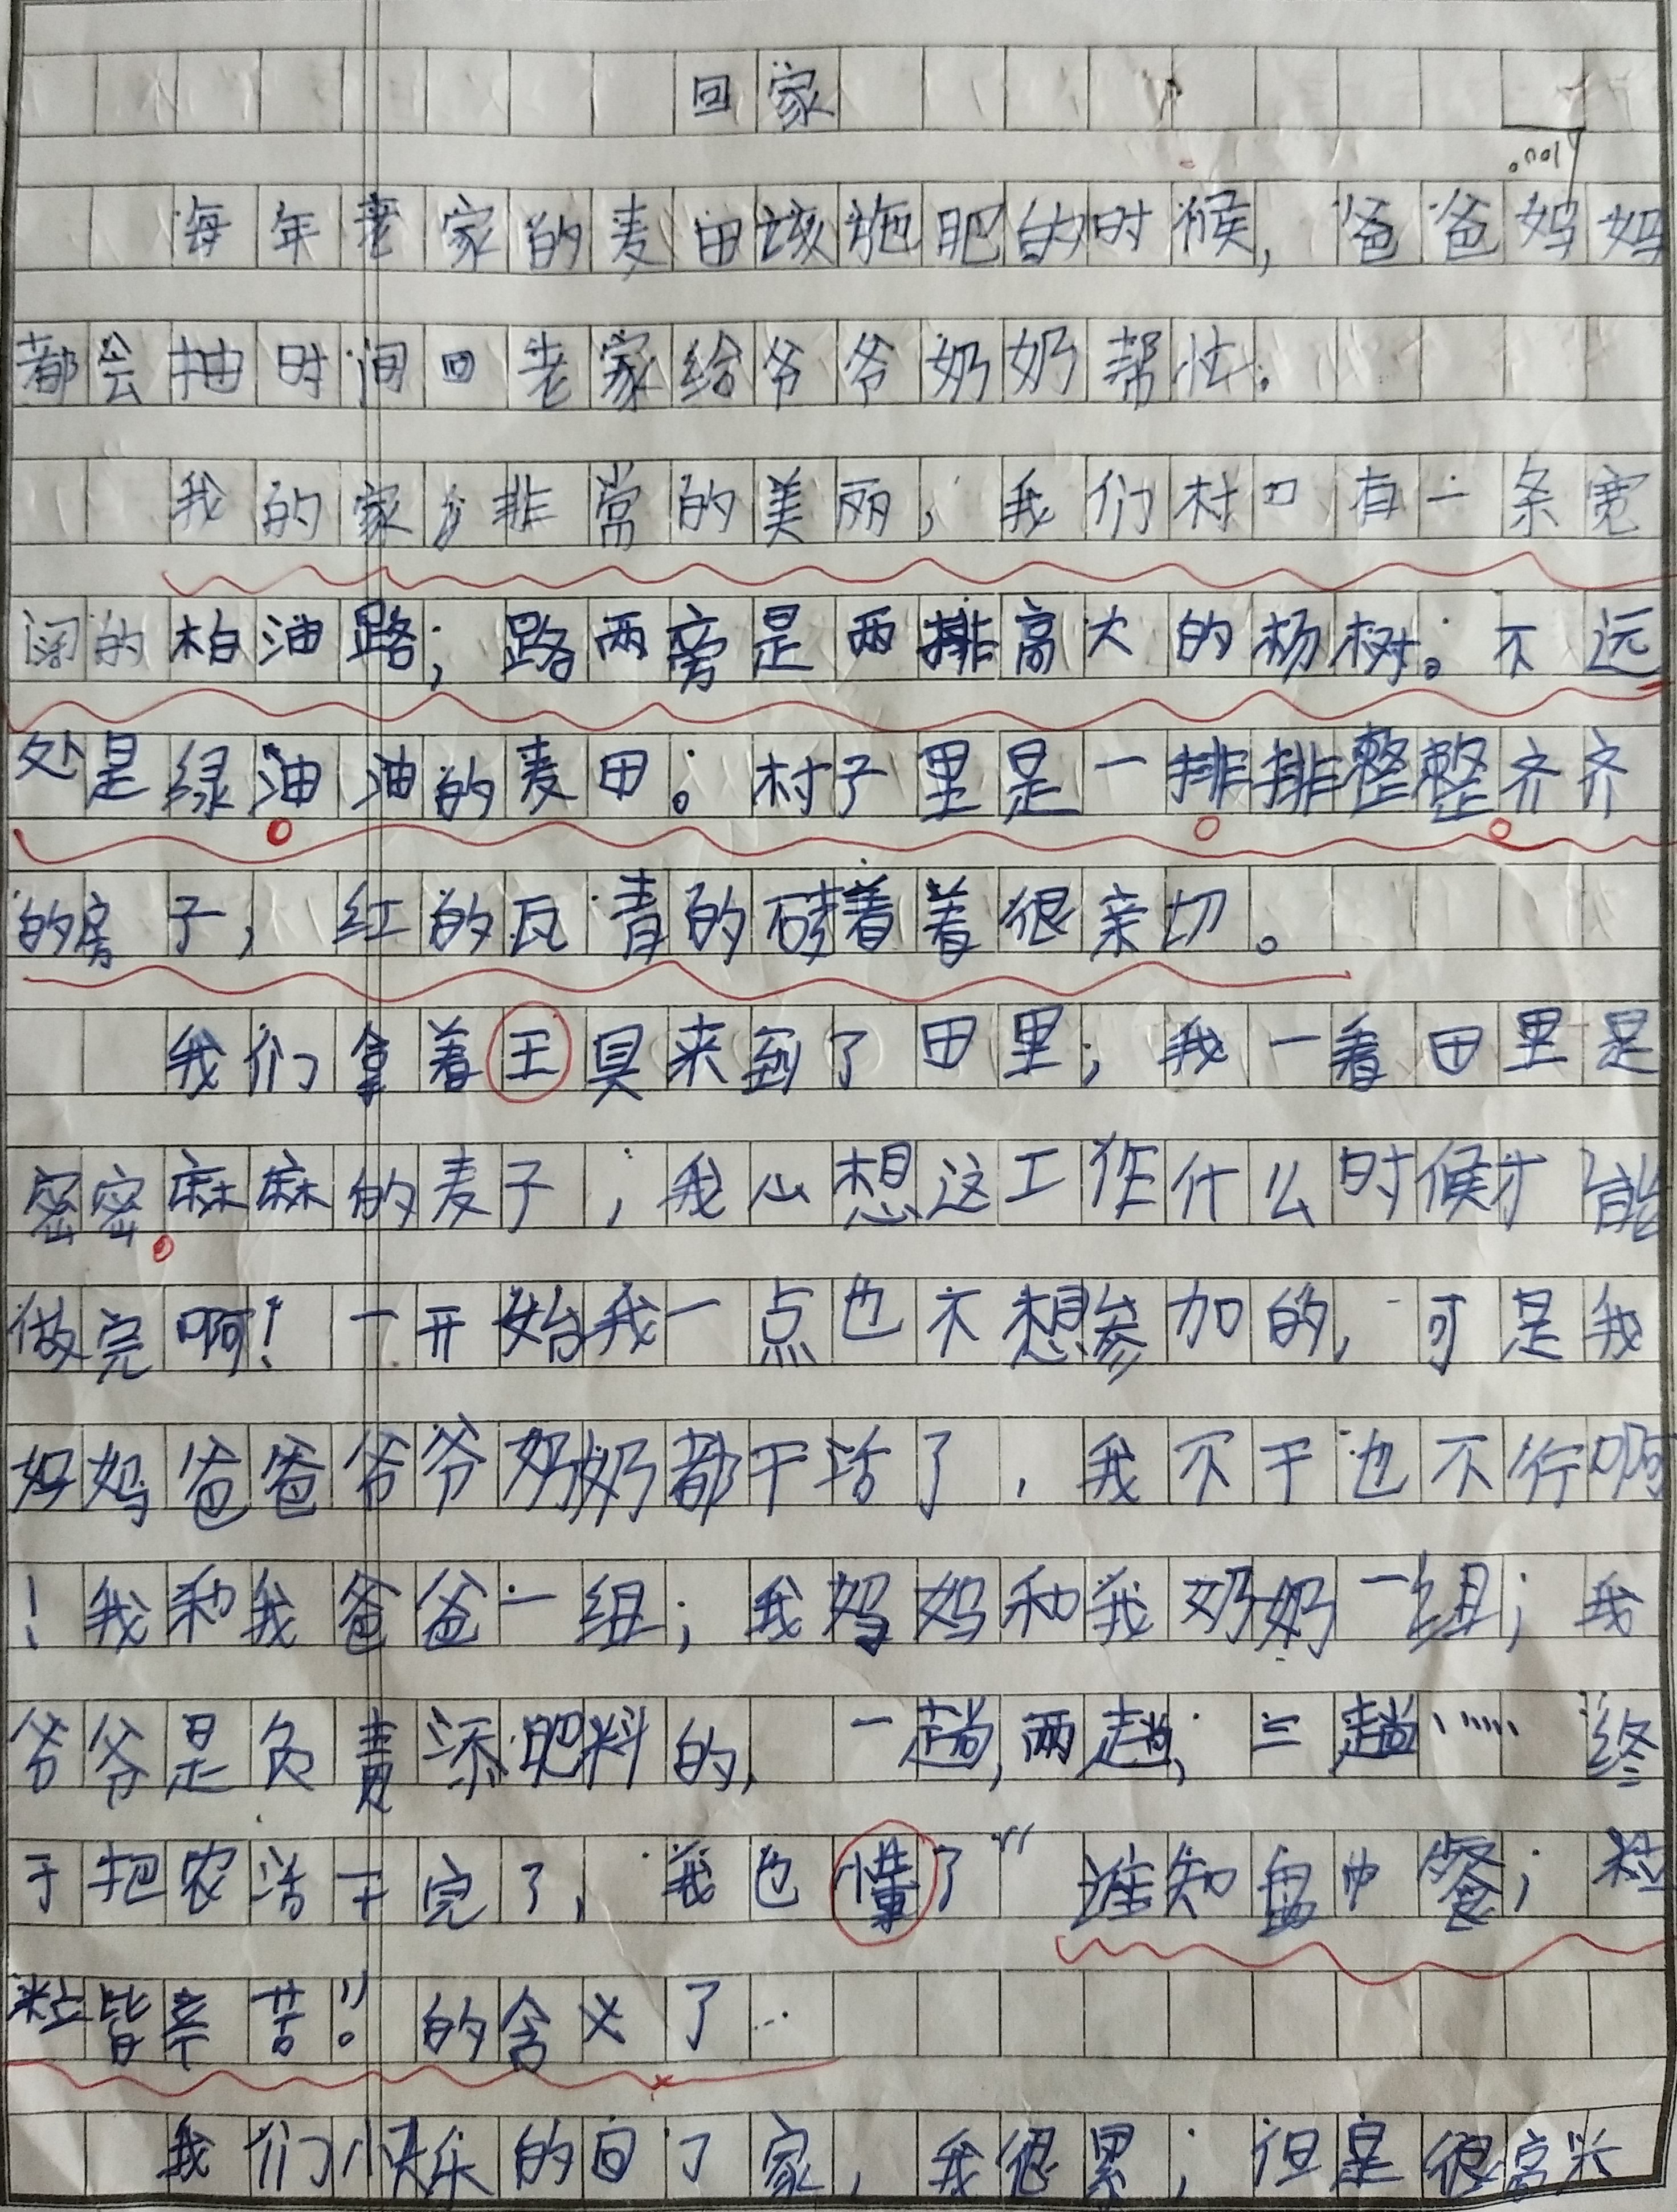 回家
每年老家的麦田该施肥的时候，爸爸妈妈
都会抽时间回老家给爷爷奶奶帮忙。
我的家乡非常的美丽，我们村口有一条宽
阔的柏油路；路两旁是两排高大的杨树。不远
处是绿油油的麦田。村子里是一排排整整齐齐
的房子，红的瓦青的砖看着很亲切。
我们拿着王具来到了田里；我一看田里是
密密麻麻的麦子，我心想这工作什么时候才能
做完啊！一开始我一点也不想参加的，可是我
妈妈爸爸爷爷奶奶都干活了，我不干也不行啊
！我和我爸爸一组；我妈妈和我奶奶一组；我
爷爷是负责添肥料的，一趟，两趟，三趟……终
于把农活干完了，我也懂了“谁知盘中餐；粒
粒皆辛苦。”的含义了
我们快乐的回了家，我很累；但是很高兴